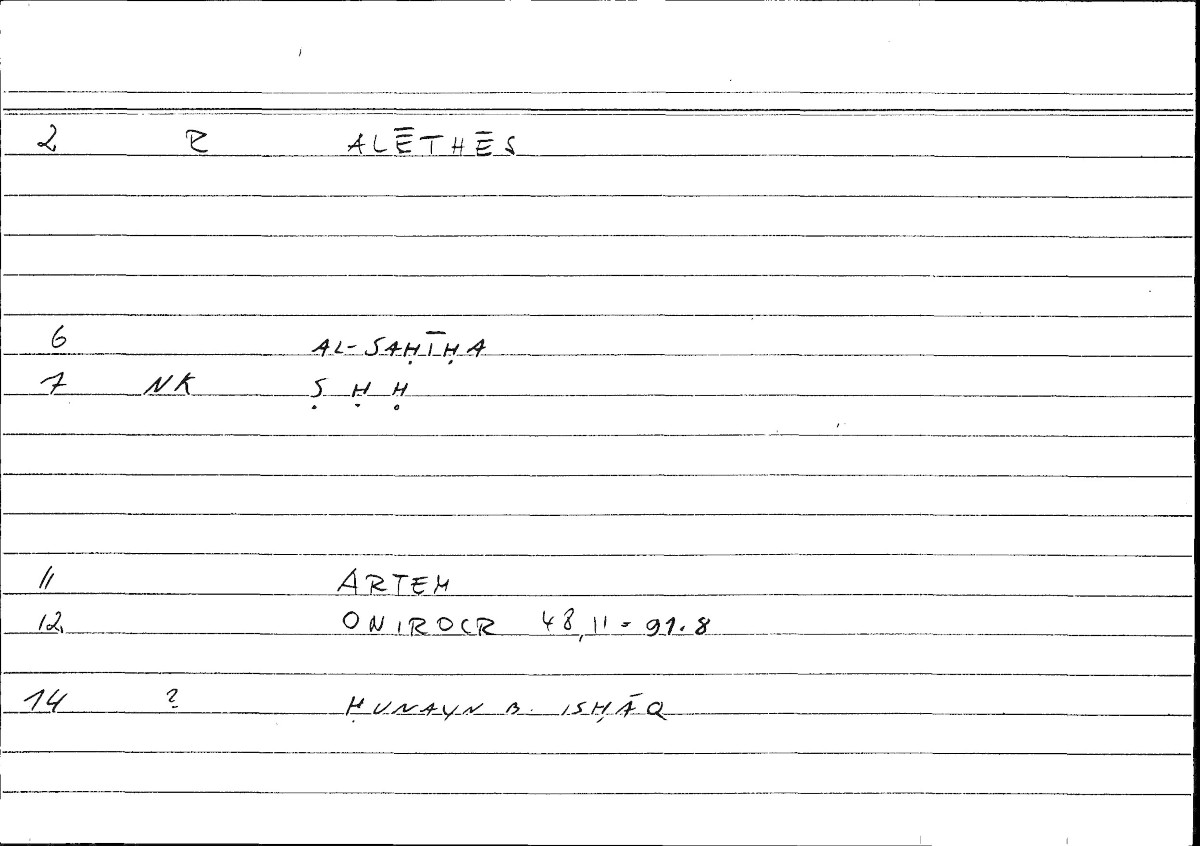 2 R ALĒTHĒS
6 AL-SAḤĪḤA
7 NK Ṣ Ḥ Ḥ
11 ARTEM
12. ONIROCR 48,11 = 91.8
14 ? ḤUNAYN B. ISḤĀQ